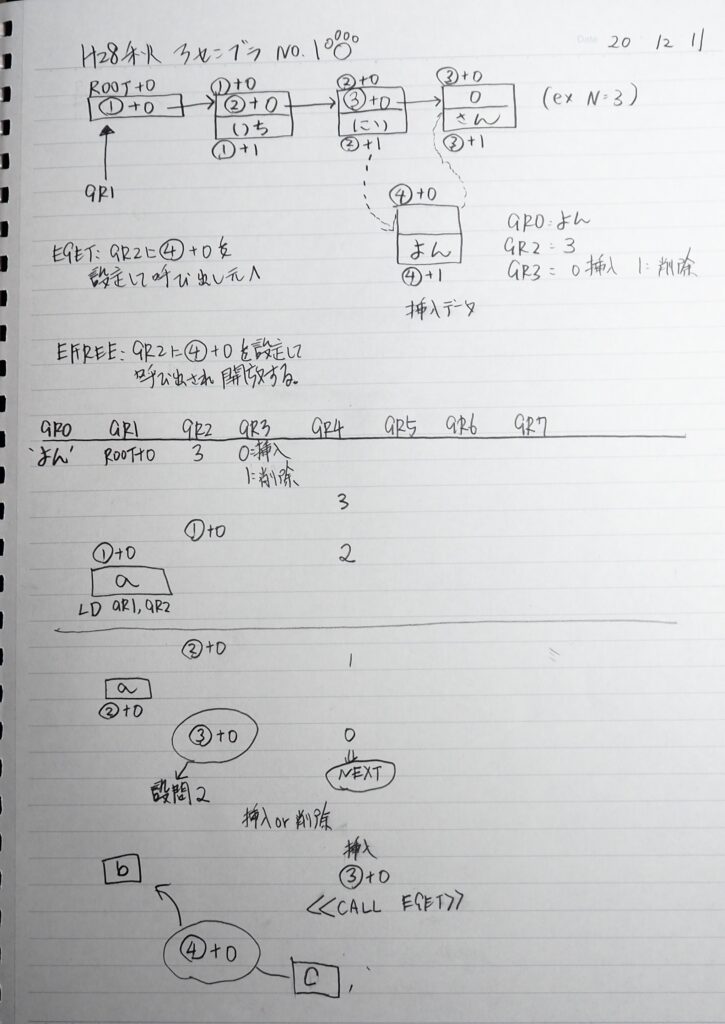 H28秋 アセンブラ NO.1
20 12 11
ROOT+0 ①+0 ②+0 ③+0
①+0 ②+0 ③+0 0 (ex N=3)
いち にい さん
①+1 ②+1 ③+1
GR1
④+0
よん
④+1
挿入データ
GR0: よん
GR2 = 3
GR3 = 0 挿入 1:削除
EGET: GR2に④+0を
設定して呼び出し元へ
EFREE: GR2に④+0を設定して
呼び出され開放する。
GR0 GR1 GR2 GR3 GR4 GR5 GR6 GR7
'よん' ROOT+0 3 0:挿入
1:削除
3
①+0
①+0 2
a
LD GR1,GR2
②+0 1
a
②+0
③+0 0
設問2 NEXT
挿入or削除
挿入
b ③+0
<<CALL EGET>>
④+0
C